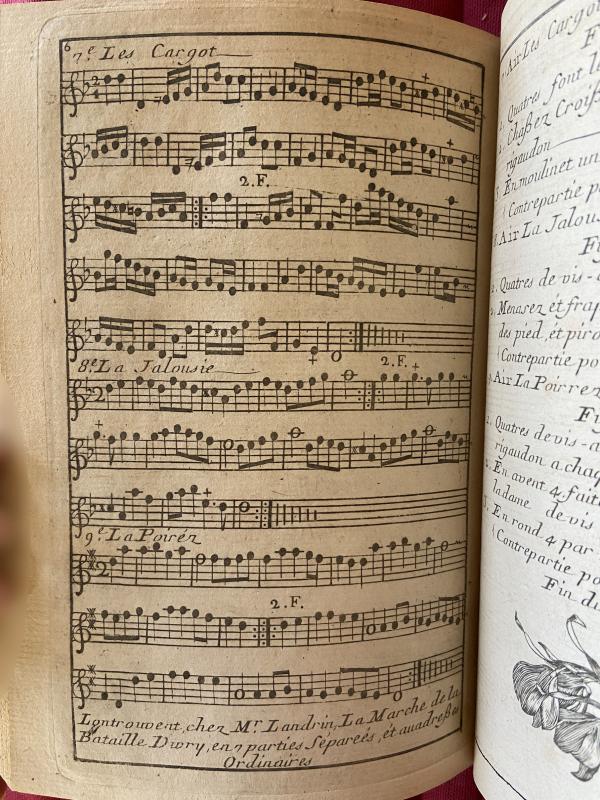 6
7.e Les Cargot
2.F.
8.e La Jalousie
2.F.
9.e La Poiréz
2.F.
Lontrouvent, chez Mr. Landrin, La Marche de la
Bataille Divry, en 7 parties Séparées, et
Ordinaires
Air Les Cargot
Quatres font le
Chaßez Croiß
rigaudon
En moulinet un
Contrepartie po
Air La Jalous
Quatres de vis-a
Menasez ét frap
des pied, ét piro
Contrepartie po
Air La Poirrez
Quatres de vis-a
rigaudon a chaq
En avent 4. fait
la dame de vis
En rond 4 par
Contrepartie po
Fin du